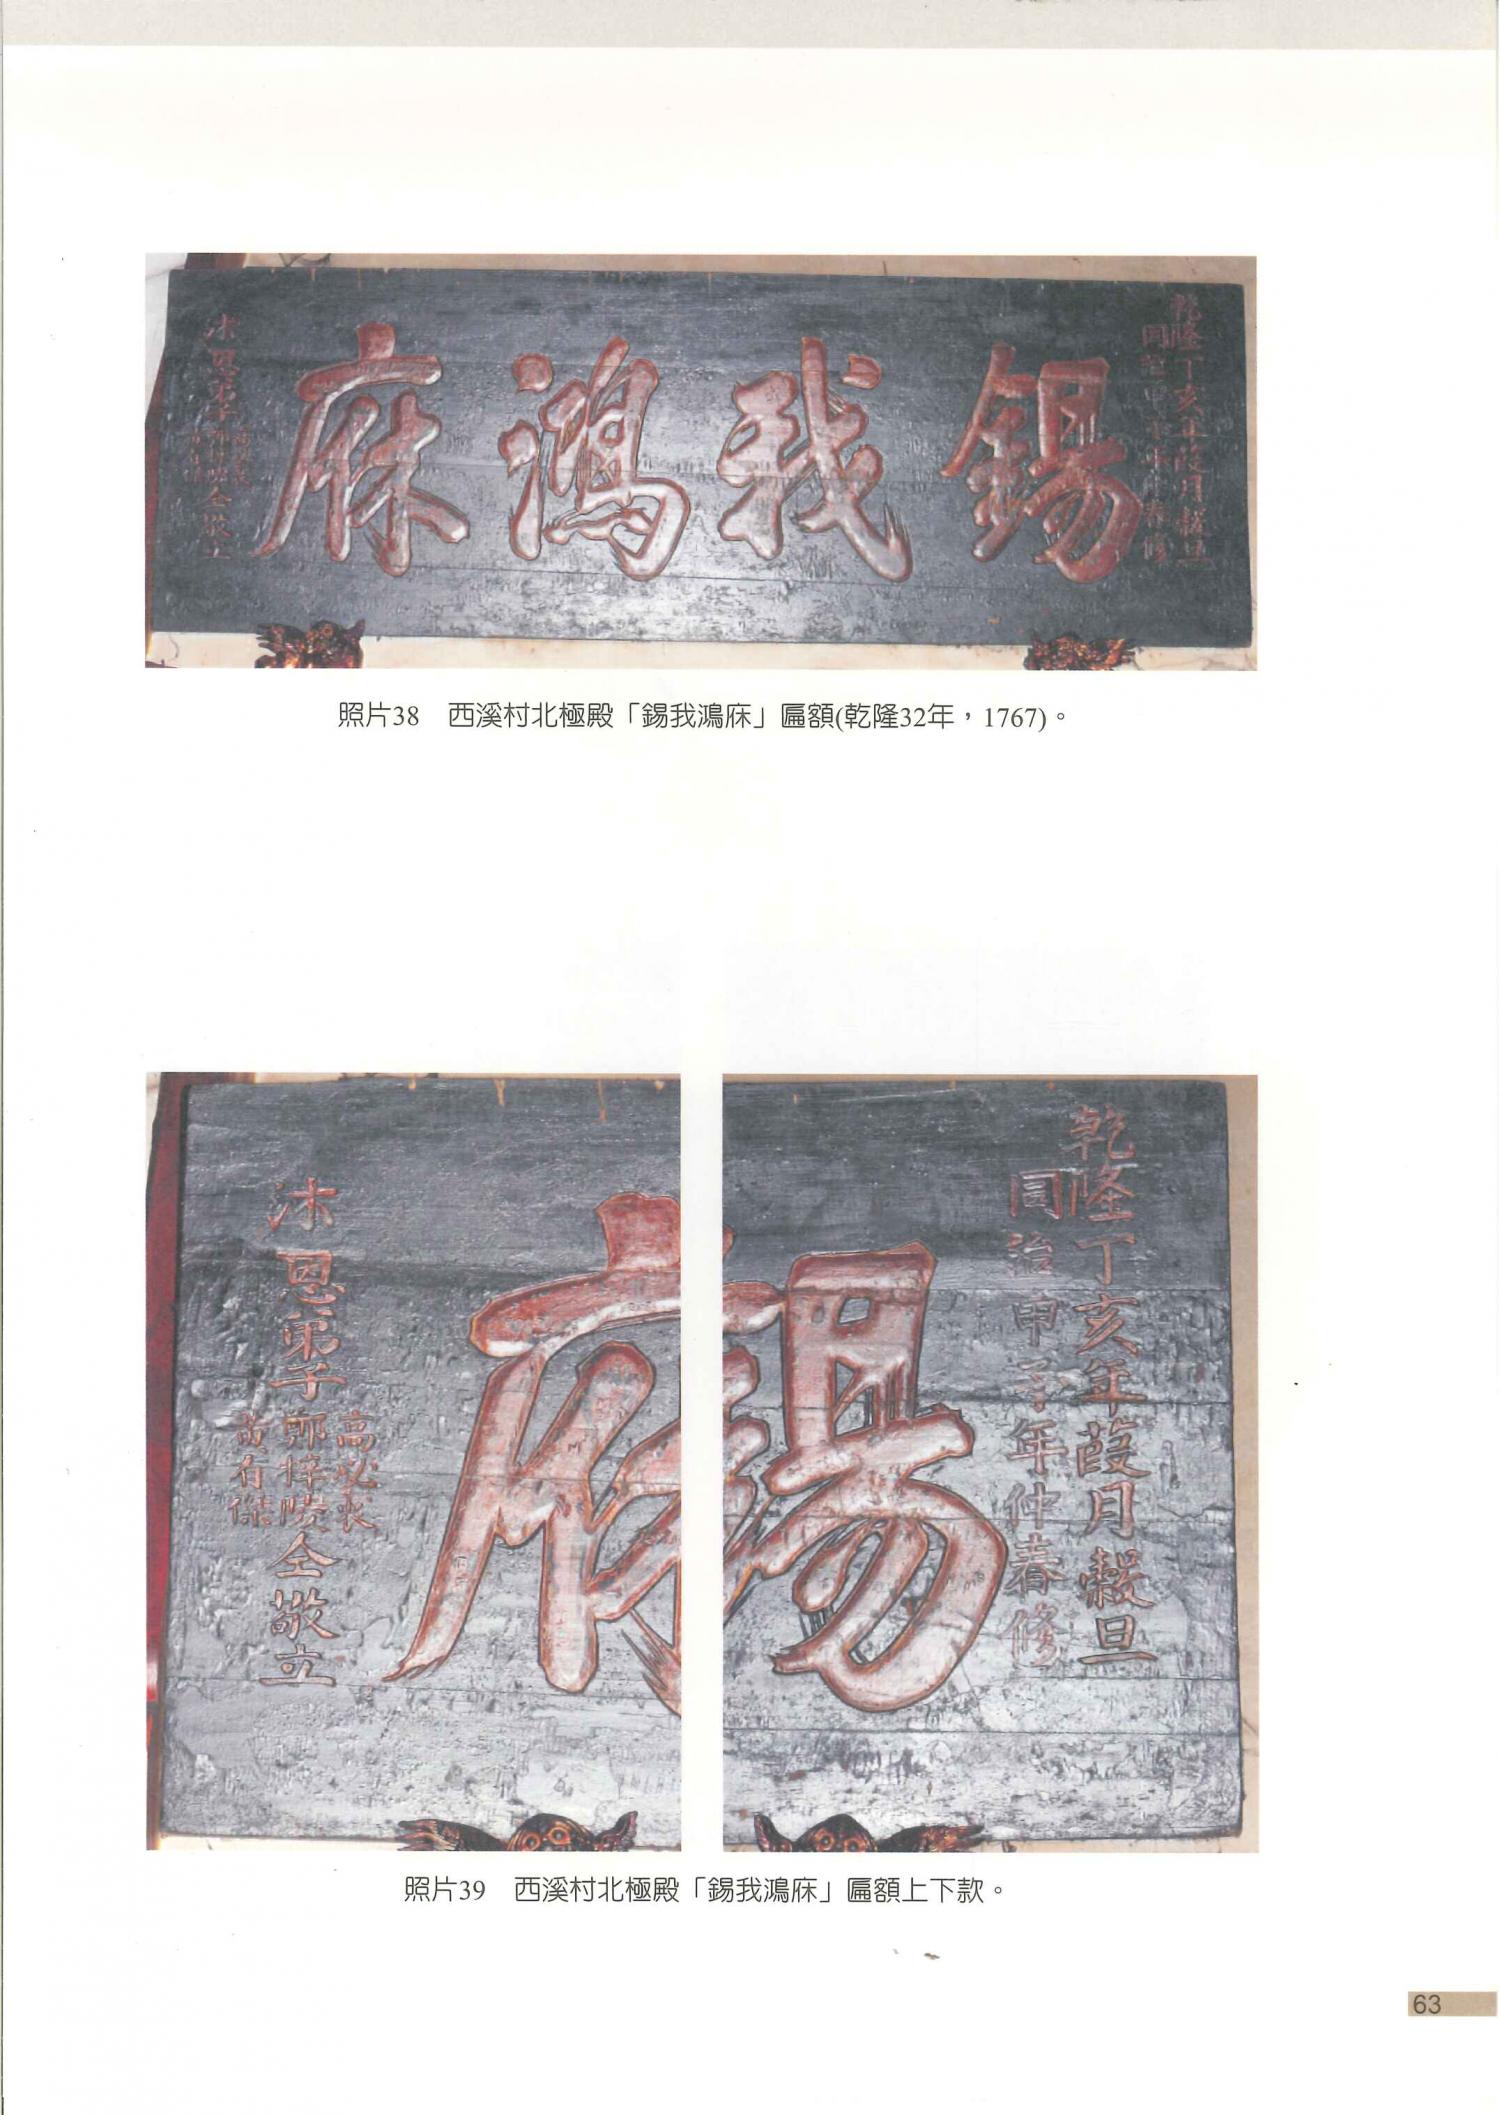 錫我鴻庥
乾隆丁亥年葭月穀旦
同治甲子年仲春修
沐恩弟子
仝敬立
照片38　西溪村北極殿「錫我鴻庥」匾額(乾隆32年，1767)。
乾隆丁亥年葭月穀旦
同治甲子年仲春修
錫
庥
沐恩弟子
高必
鄭梓陵
黃有傑
仝敬立
照片39　西溪村北極殿「錫我鴻庥」匾額上下款。
63